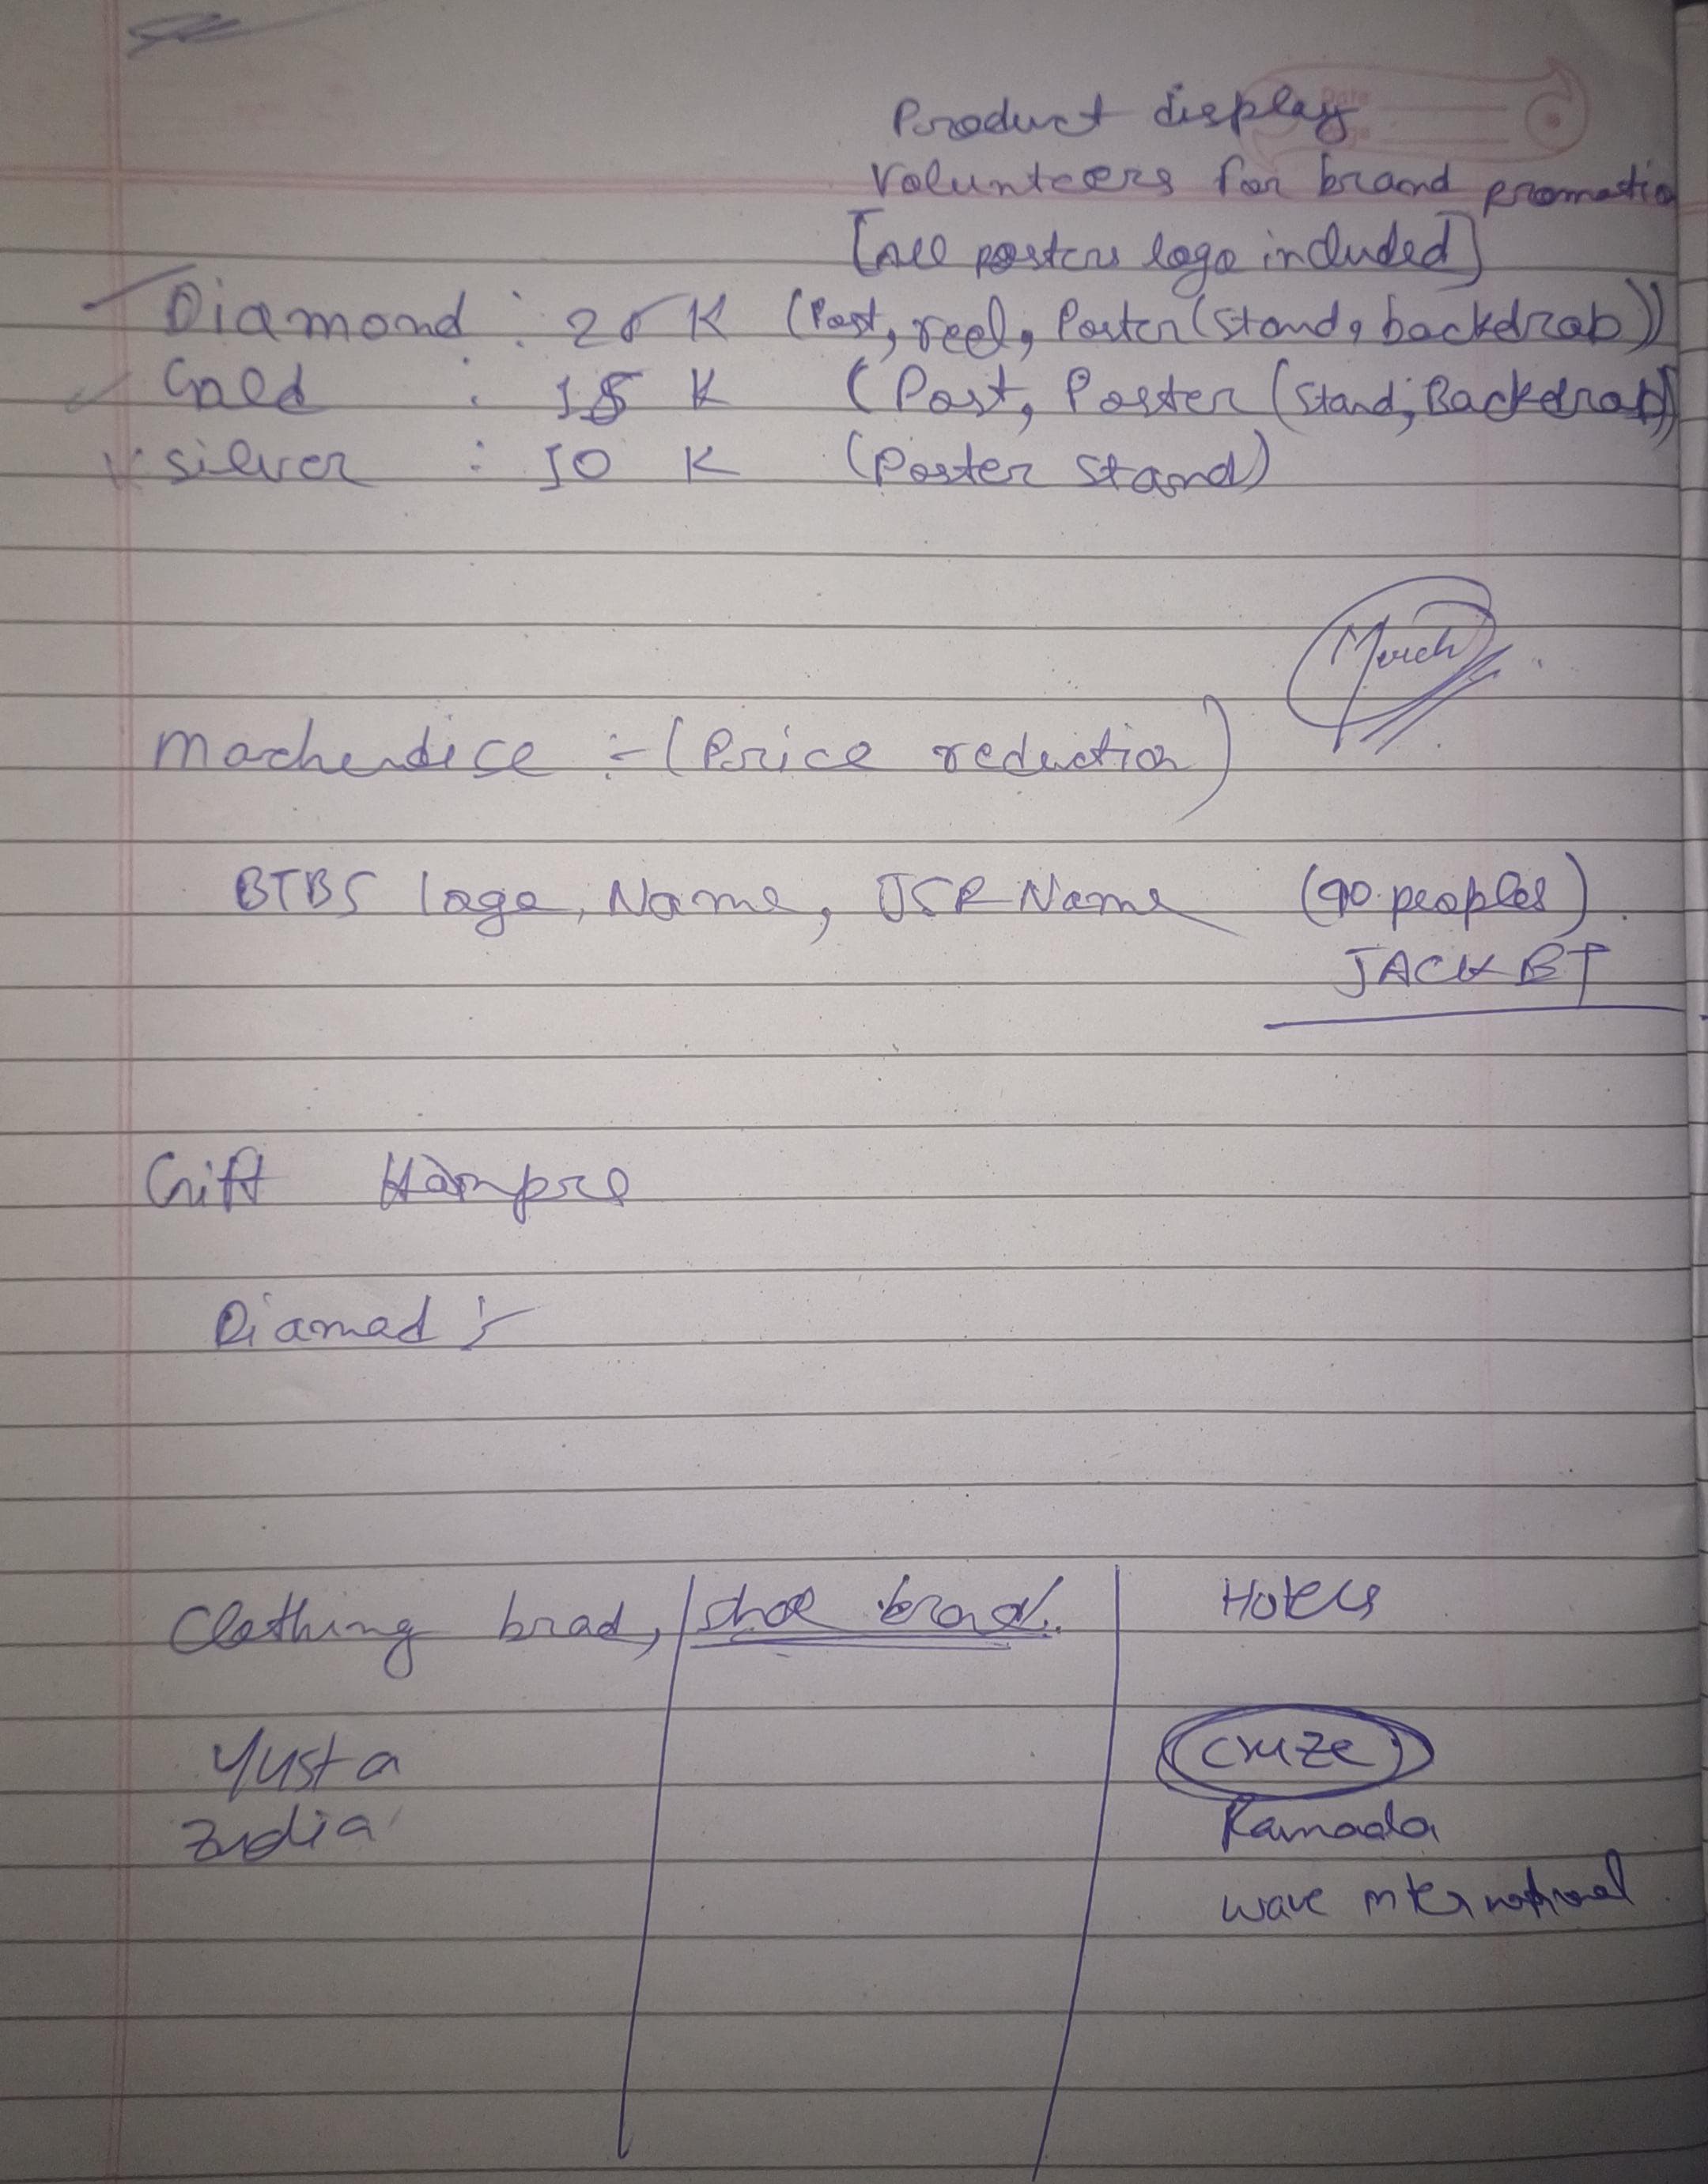 Product display
Volunteers for brand promotio
[All posters logo included]
Diamond : 25 K (Post, reel, Poster (stand, backdrab))
Gold : 15 K (Post, Poster (Stand, Backdrab))
silver : 10 K (Poster stand)
Merch
Machendice :- (Price reduction)
BTBS logo, Name, JSR Name (90 peoples)
JACKET
Gift Hampre
Diamad :-
Clothing brad, shoe brad. Hotels
Yusta cruze
Zudia Ramada
wave international